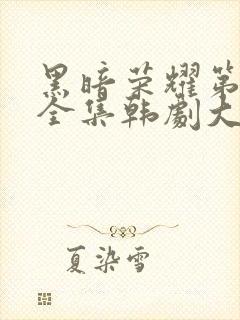 黑暗荣耀第
全集韩剧大
夏染雪